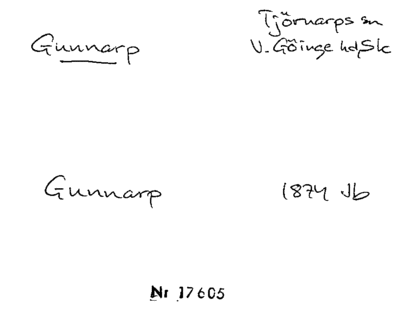 Gunnarp
Tjörnarps sn
V. Göinge hd, Sk
Gunnarp
1874 Jb
Nr 17605